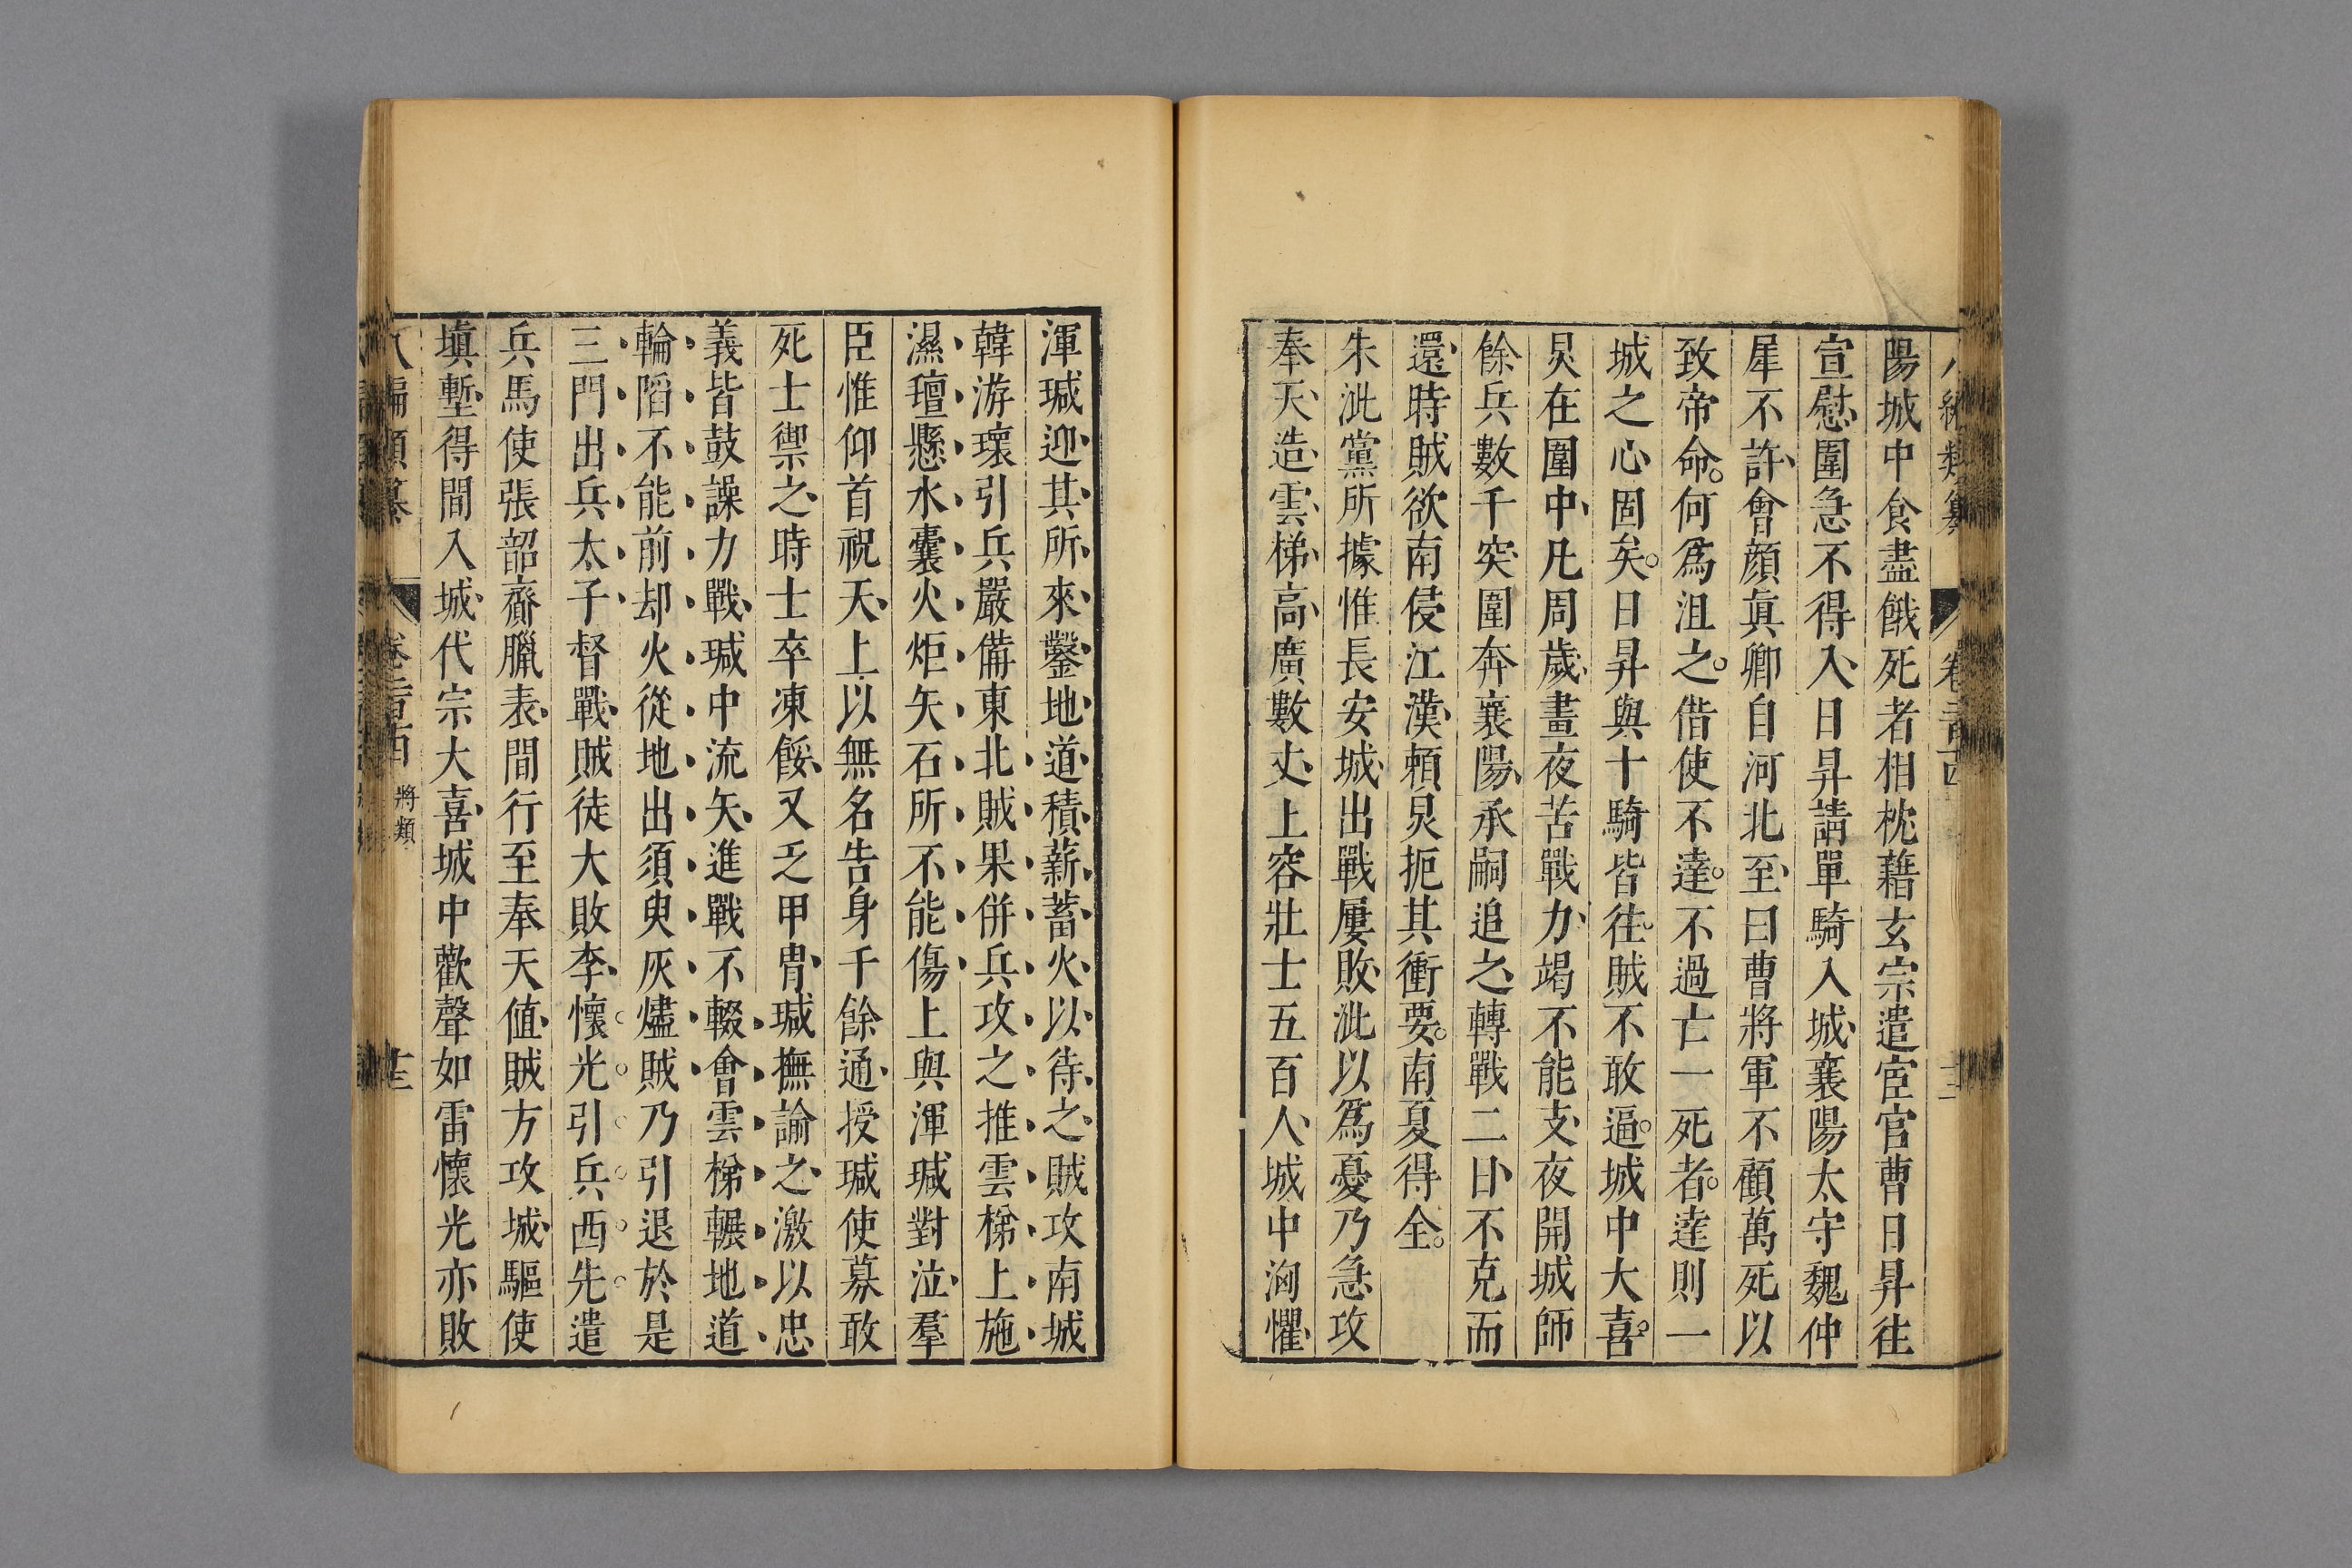 陽城中食盡餓死者相枕藉玄宗遣宦官曹日昇往
宣慰圍急不得入日昇請單騎入城襄陽太守魏仲
犀不許會顔眞卿自河北至曰曹將軍不顧萬死以
致帝命何爲沮之偕使不達不過亡一死者達則一
城之心固矣日昇與十騎皆往賊不敢逼城中大喜
炅在圍中凡周歲晝夜苦戰力竭不能支夜開城師
餘兵數千突圍奔襄陽承嗣追之轉戰二日不克而
還時賊欲南侵江漢賴炅扼其衝要南夏得全
朱泚黨所據惟長安城出戰屢敗泚以爲憂乃急攻
奉天造雲梯高廣數丈上容壯士五百人城中洶懼
渾瑊迎其所來鑿地道積薪蓄火以待之賊攻南城
韓游瓌引兵嚴備東北賊果併兵攻之推雲梯上施
濕氊懸水囊火炬矢石所不能傷上與渾瑊對泣羣
臣惟仰首祝天上以無名告身千餘通授瑊使募敢
死士禦之時士卒凍餒又乏甲冑瑊撫諭之激以忠
義皆鼓譟力戰瑊中流矢進戰不輟會雲梯輾地道
輪陷不能前却火從地出須臾灰燼賊乃引退於是
三門出兵太子督戰賊徒大敗李懷光引兵西先遣
兵馬使張韶齎臘表間行至奉天値賊方攻城驅使
塡塹得間入城代宗大喜城中歡聲如雷懷光亦敗
八編類纂 將類 十三